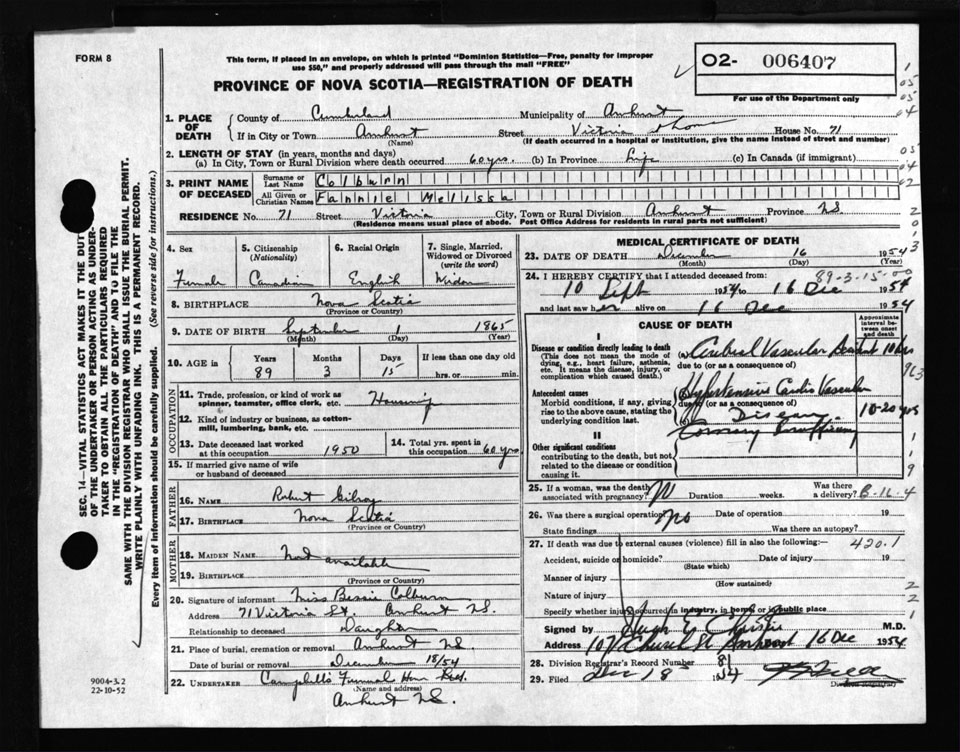 FORM 8
This form, if placed in an envelope, on which is printed "Dominion Statistics—Free, penalty for improper
use $50," and properly addressed will pass through the mail "FREE"
O2- 006407
For use of the Department only
PROVINCE OF NOVA SCOTIA—REGISTRATION OF DEATH
1. PLACE OF DEATH
County of Cumberland Municipality of Amherst
If in City or Town Amherst Street Victoria House No. 71
(Name) (If death occurred in a hospital or institution, give the name instead of street and number)
2. LENGTH OF STAY (in years, months and days)
(a) In City, Town or Rural Division where death occurred 60 yrs. (b) In Province Life (c) In Canada (if immigrant)
3. PRINT NAME OF DECEASED
Surname or Last Name Colburn
All Given or Christian Names Fannie Melissa
RESIDENCE No. 71 Street Victoria City, Town or Rural Division Amherst Province N.S.
(Residence means usual place of abode. Post Office Address for residents in rural parts not sufficient)
4. Sex Female
5. Citizenship (Nationality) Canadian
6. Racial Origin English
7. Single, Married, Widowed or Divorced (write the word) Widow
8. BIRTHPLACE Nova Scotia
(Province or Country)
9. DATE OF BIRTH September 1 1865
(Month) (Day) (Year)
10. AGE in Years Months Days If less than one day old
89 3 15 hrs. or min.
OCCUPATION
11. Trade, profession, or kind of work as
spinner, teamster, office clerk, etc.
12. Kind of industry or business, as cotton-
mill, lumbering, bank, etc.
13. Date deceased last worked
at this occupation 1950
14. Total yrs. spent
in this occupation 60 yrs
15. If married give name of wife
or husband of deceased
FATHER
16. Name Robert Gilroy
17. Birthplace Nova Scotia
(Province or Country)
MOTHER
18. MAIDEN NAME Not available
19. BIRTHPLACE
(Province or Country)
20. Signature of informant Miss Bessie Colburn
Address 71 Victoria St. Amherst N.S.
Relationship to deceased Daughter
21. Place of burial, cremation or removal Amherst N.S.
Date of burial or removal December 18/54
22. UNDERTAKER Campbell's Funeral Home Reg.
(Name and address)
Amherst N.S.
MEDICAL CERTIFICATE OF DEATH
23. DATE OF DEATH December 16 1954
(Month) (Day) (Year)
24. I HEREBY CERTIFY that I attended deceased from: 89-3-15-00
10 Sept 1954 to 16 Dec 1954
and last saw her alive on 16 Dec 1954
CAUSE OF DEATH
Approximate interval between onset and death
I
Disease or condition directly leading to death
(This does not mean the mode of
dying, e.g., heart failure, asthenia,
etc. It means the disease, injury, or
complication which caused death.)
(a) Cerebral Vascular Accident
due to (or as a consequence of)
Antecedent causes
Morbid conditions, if any, giving
rise to the above cause, stating the
underlying condition last.
Hypertensive Cardio Vascular
due to (or as a consequence of)
Disease 10-20 yrs
Coronary Insufficiency
II
Other significant conditions
contributing to the death, but not
related to the disease or condition
causing it.
25. If a woman, was the death
associated with pregnancy? No Duration weeks. Was there
a delivery? B-16-4
26. Was there a surgical operation? No Date of operation 19
State findings Was there an autopsy?
27. If death was due to external causes (violence) fill in also the following:— 420.1
Accident, suicide or homicide? Date of injury 19
(State which)
Manner of injury
(How sustained)
Nature of injury
Specify whether injury occurred in industry, in home or in public place
Signed by Hugh E. Christie M.D.
Address 107 Church St Amherst 16 Dec 1954
28. Division Registrar's Record Number 81
29. Filed Dec 18 1954
Division Registrar
SEC. 14—VITAL STATISTICS ACT MAKES IT THE DUTY
OF THE UNDERTAKER OR PERSON ACTING AS UNDER-
TAKER TO OBTAIN ALL THE PARTICULARS REQUIRED
IN THE "REGISTRATION OF DEATH" AND TO FILE THE
SAME WITH THE DIVISION REGISTRAR WHO SHALL ISSUE THE BURIAL PERMIT.
WRITE PLAINLY WITH UNFADING INK. THIS IS A PERMANENT RECORD.
Every item of information should be carefully supplied. (See reverse side for instructions.)
9004-3.2
22-10-52